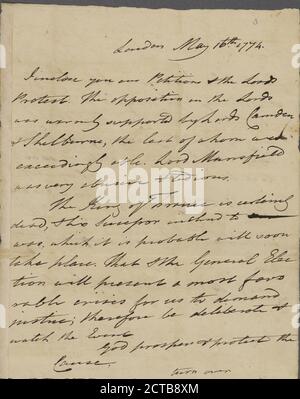 London May 16th. 1774.
I inclose you our Petition & the Lords
Protest. The opposition in the Lords
was warmly supported by Lords Camden
& Shelburne, the last of whom was
exceedingly able. Lord Mansfield
was very abusive
The King of France is certainly
dead, & his Successor inclined to
war, which it is probable will soon
take place. That & the General Elec
tion will present a most favo
rable crisis for us to demand
justice; therefore be deliberate &
watch the Event
God prosper & protest the
Cause.
turn over
alamy
Image ID: 2CTB8XM
www.alamy.com